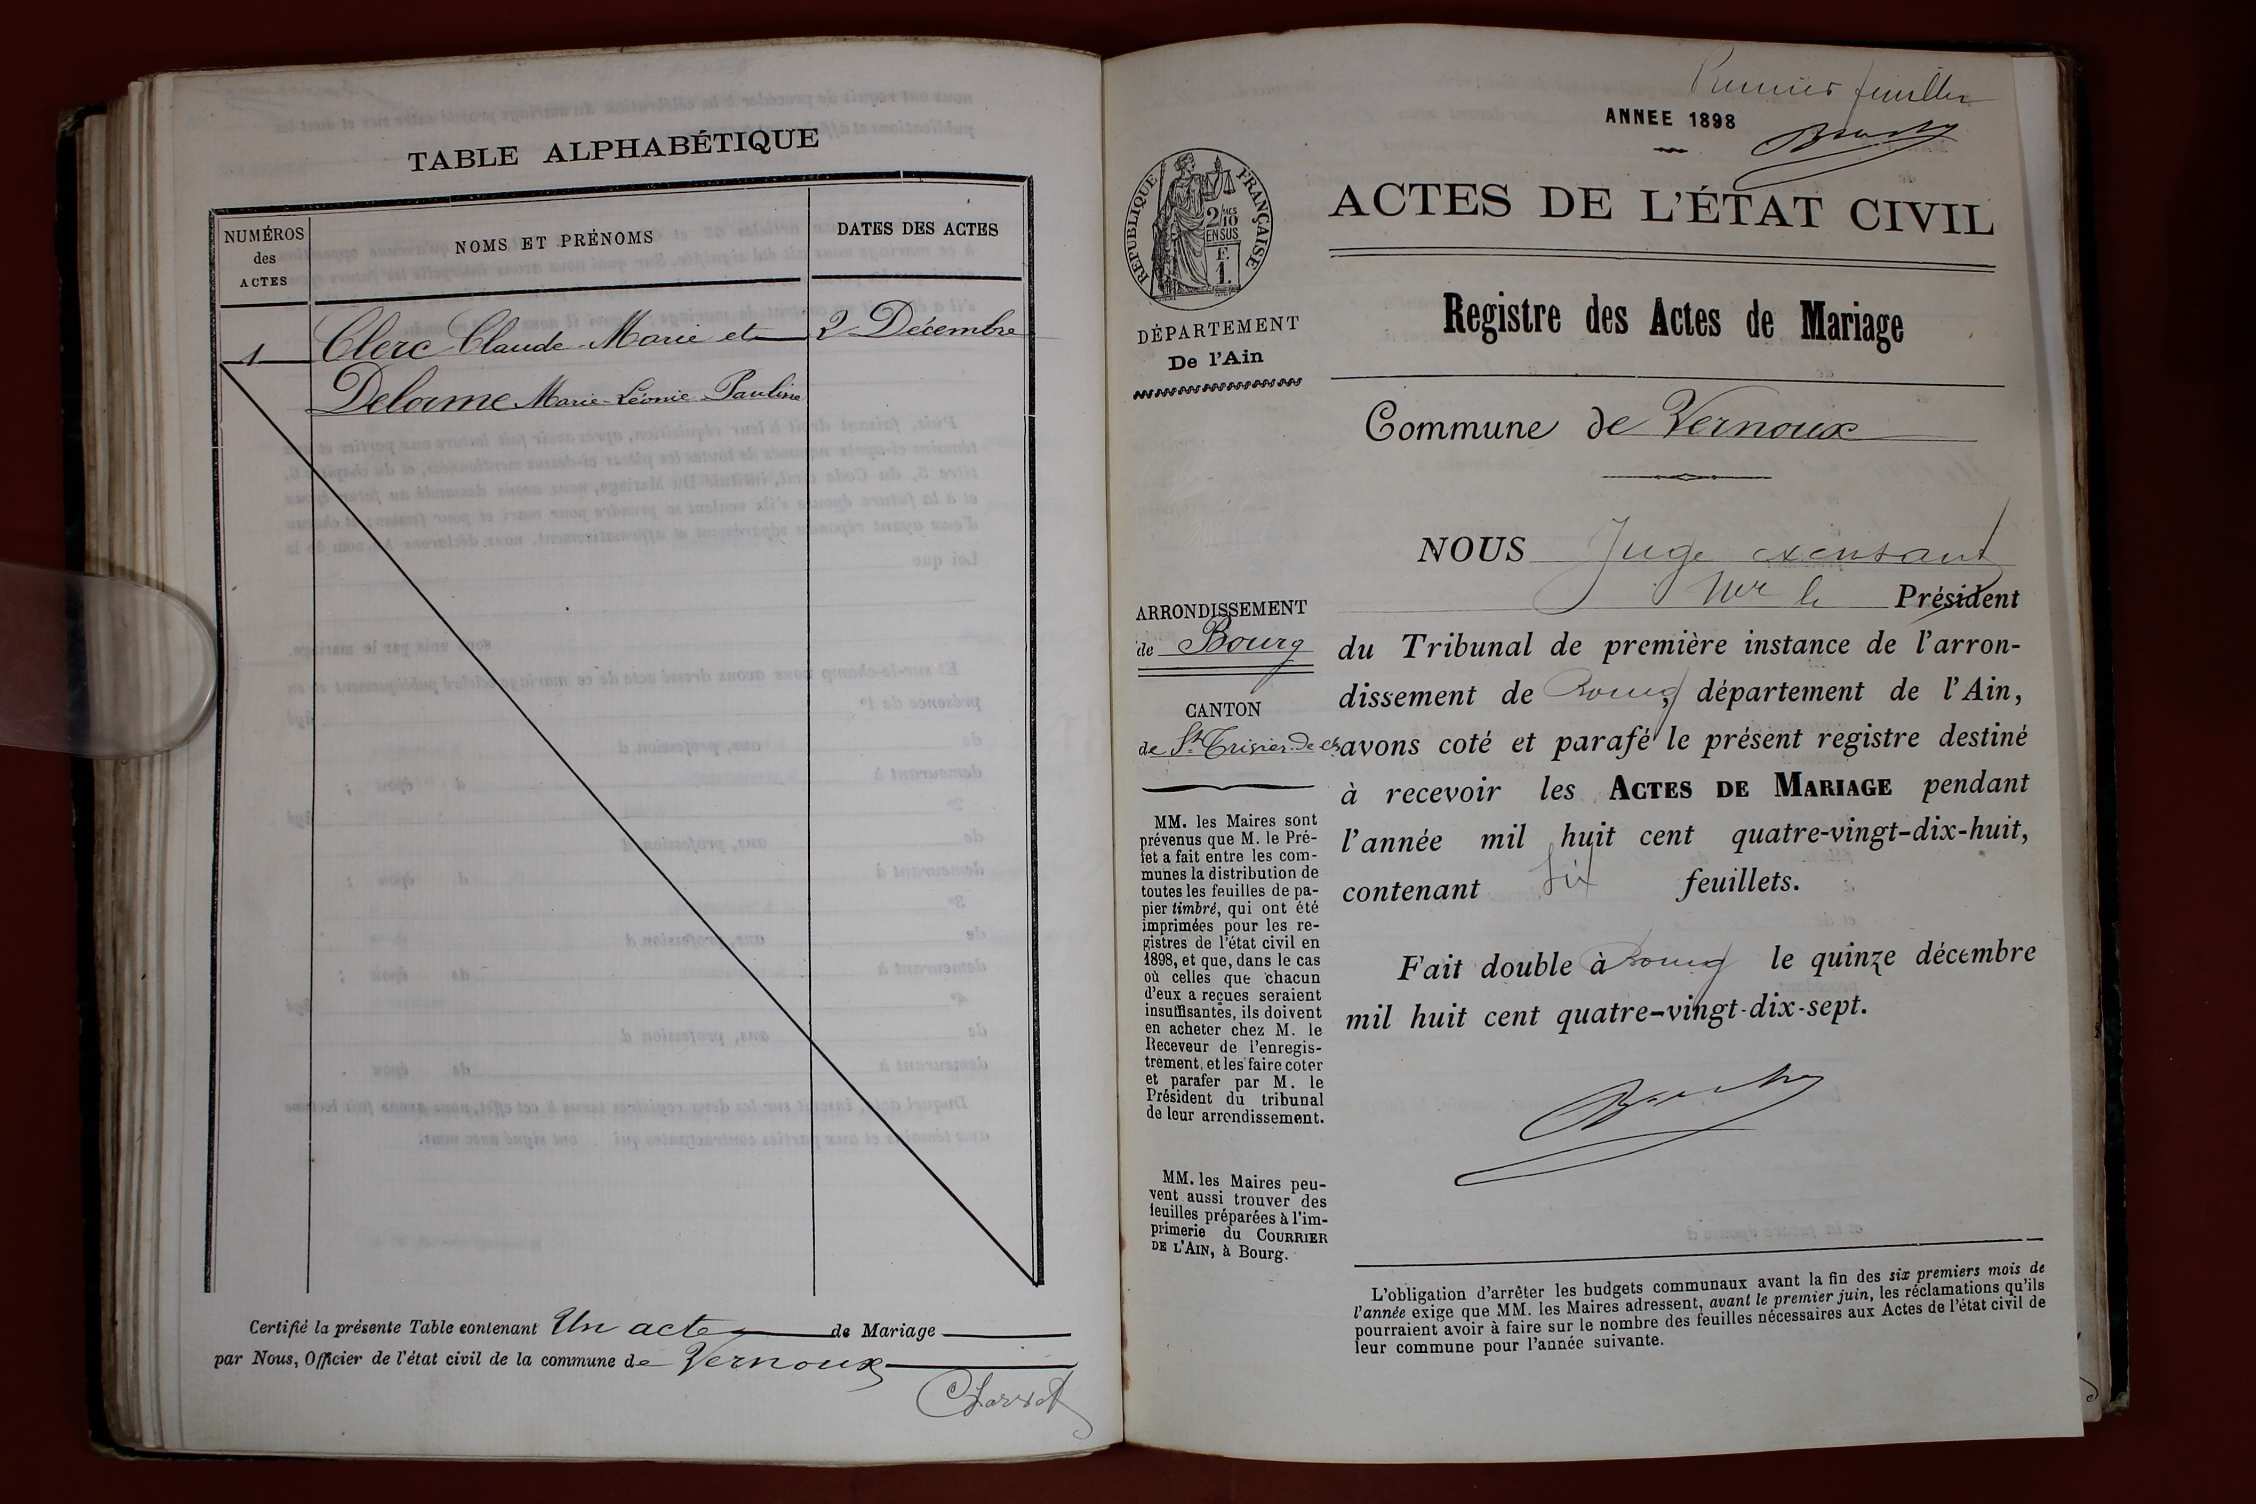 TABLE ALPHABÉTIQUE
NUMÉROS
des
ACTES
NOMS ET PRÉNOMS
DATES DES ACTES
1 Clerc Claude Marie et 2 Décembre
Delorme Marie-Léonie-Pauline
Certifié la présente Table contenant Un acte de Mariage
par Nous, Officier de l'état civil de la commune de Vernoux
Premier feuillet
ANNEE 1898
RÉPUBLIQUE FRANÇAISE
2/10
EN SUS
F.
1.
ACTES DE L'ÉTAT CIVIL
DÉPARTEMENT
De l'Ain
Registre des Actes de Mariage
Commune de Vernoux
ARRONDISSEMENT
de Bourg
CANTON
de St Trivier-de-C
MM. les Maires sont
prévenus que M. le Pré-
fet a fait entre les com-
munes la distribution de
toutes les feuilles de pa-
pier timbré, qui ont été
imprimées pour les re-
gistres de l'état civil en
1898, et que, dans le cas
où celles que chacun
d'eux a reçues seraient
insuffisantes, ils doivent
en acheter chez M. le
Receveur de l'enregis-
trement, et les faire coter
et parafer par M. le
Président du tribunal
de leur arrondissement.
MM. les Maires peu-
vent aussi trouver des
feuilles préparées à l'im-
primerie du COURRIER
DE L'AIN, à Bourg.
NOUS Juge
le Président
du Tribunal de première instance de l'arron-
dissement de Bourg, département de l'Ain,
avons coté et parafé le présent registre destiné
à recevoir les ACTES DE MARIAGE pendant
l'année mil huit cent quatre-vingt-dix-huit,
contenant six feuillets.
Fait double à Bourg le quinze décembre
mil huit cent quatre-vingt-dix-sept.
L'obligation d'arrêter les budgets communaux avant la fin des six premiers mois de
l'année exige que MM. les Maires adressent, avant le premier juin, les réclamations qu'ils
pourraient avoir à faire sur le nombre des feuilles nécessaires aux Actes de l'état civil de
leur commune pour l'année suivante.